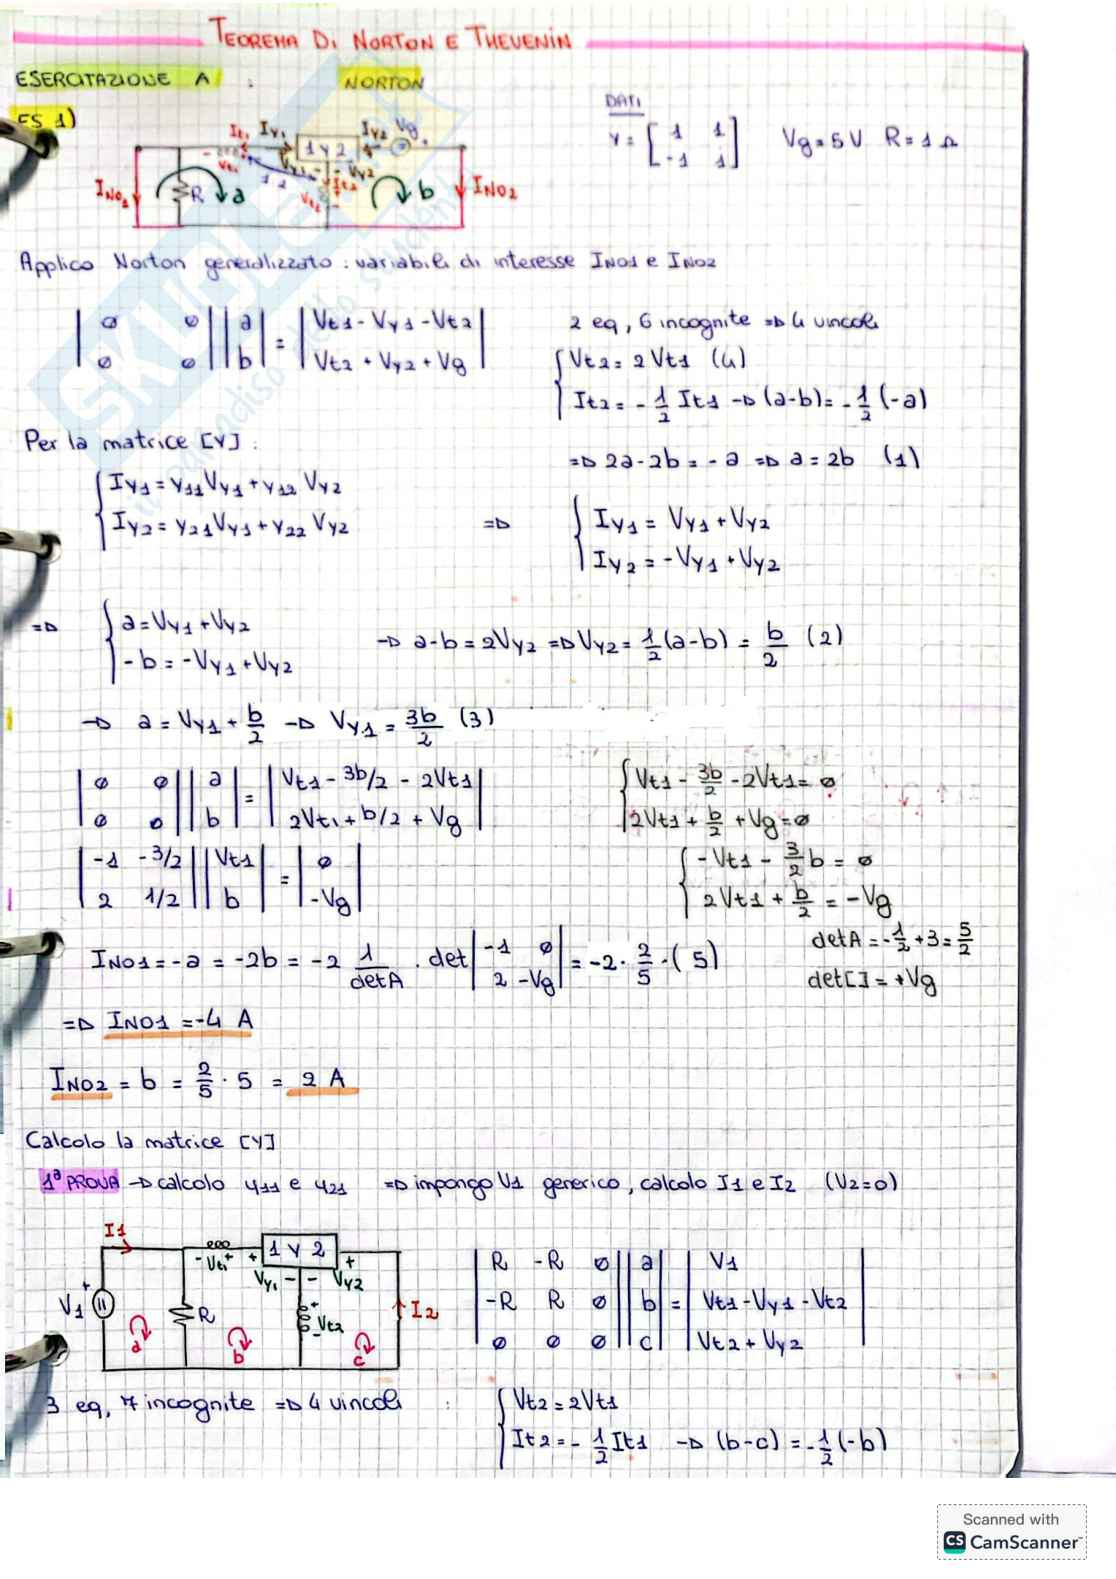 TEOREMA DI NORTON E THEVENIN
ESERCITAZIONE A : NORTON
ES 1)
DATI
Y = [1 1; -1 1] Vg = 5 V R = 1 Ω
It1 Iy1 1 Y 2 Iy2 Vg
Vt1 Vy1 Vy2 It2 Vt2
1 : 2
INO1 R a b INO2
Applico Norton generalizzato : variabili di interesse INO1 e INO2
|ø ø; ø ø| |a; b| = |Vt1 - Vy1 - Vt2; Vt2 + Vy2 + Vg|
2 eq, 6 incognite => 4 vincoli
{Vt2 = 2Vt1 (4)
It2 = -1/2 It1 -> (a-b) = -1/2 (-a)
=> 2a - 2b = -a => a = 2b (1)
Per la matrice [Y] :
{Iy1 = y11 Vy1 + y12 Vy2
Iy2 = y21 Vy1 + y22 Vy2
=> {Iy1 = Vy1 + Vy2
Iy2 = -Vy1 + Vy2
=> {a = Vy1 + Vy2
-b = -Vy1 + Vy2
-> a-b = 2Vy2 => Vy2 = 1/2 (a-b) = b/2 (2)
-> a = Vy1 + b/2 -> Vy1 = 3b/2 (3)
|ø ø; ø ø| |a; b| = |Vt1 - 3b/2 - 2Vt1; 2Vt1 + b/2 + Vg|
{Vt1 - 3b/2 - 2Vt1 = ø
2Vt1 + b/2 + Vg = ø
|-1 -3/2; 2 1/2| |Vt1; b| = |ø; -Vg|
{-Vt1 - 3/2 b = ø
2Vt1 + b/2 = -Vg
INO1 = -a = -2b = -2 1/detA · det |-1 ø; 2 -Vg| = -2 · 2/5 · (5)
detA = -1/2 + 3 = 5/2
det[] = +Vg
=> INO1 = -4 A
INO2 = b = 2/5 · 5 = 2 A
Calcolo la matrice [Y]
1ª PROVA -> calcolo y11 e y21 => impongo V1 generico, calcolo I1 e I2 (V2=0)
I1
1 Y 2
Vt1 Vy1 Vy2
V1 R Vt2 I2
a b c
|R -R ø; -R R ø; ø ø ø| |a; b; c| = |V1; Vt1 - Vy1 - Vt2; Vt2 + Vy2|
3 eq, 7 incognite => 4 vincoli :
{Vt2 = 2Vt1
It2 = -1/2 It1 -> (b-c) = -1/2 (-b)
Scanned with
CS CamScanner